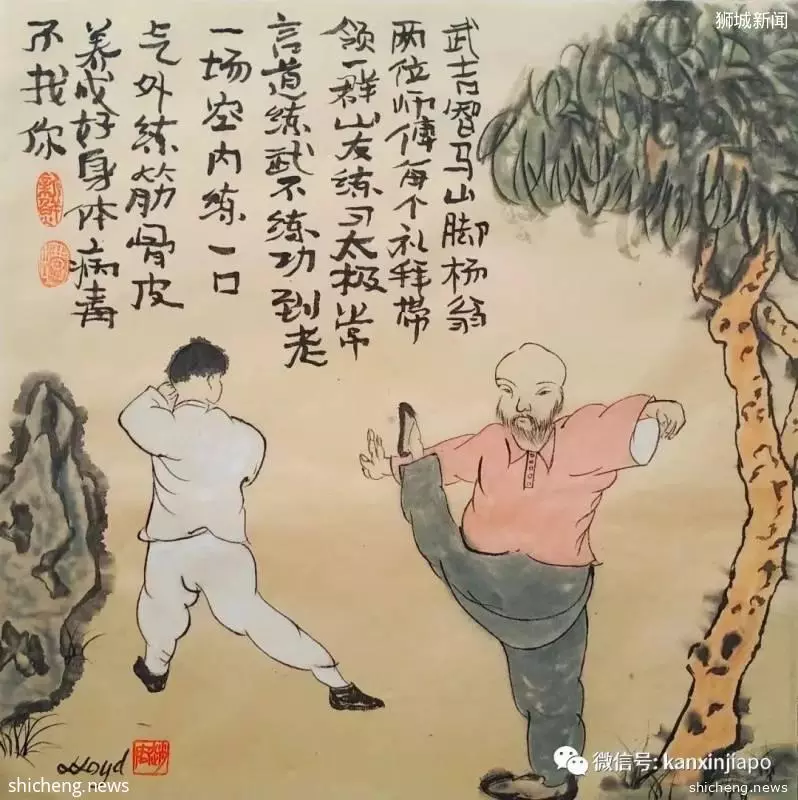 狮城新闻
武吉智马山脚杨翁
两位师傅每个礼拜带
领一群山友练习太极常
言道练武不练功到老
一场空内练一口
气外练筋骨皮
养成好身体病毒
不找你
LLoyd
微信号: kanxinjiapo
shicheng.news
shicheng.news